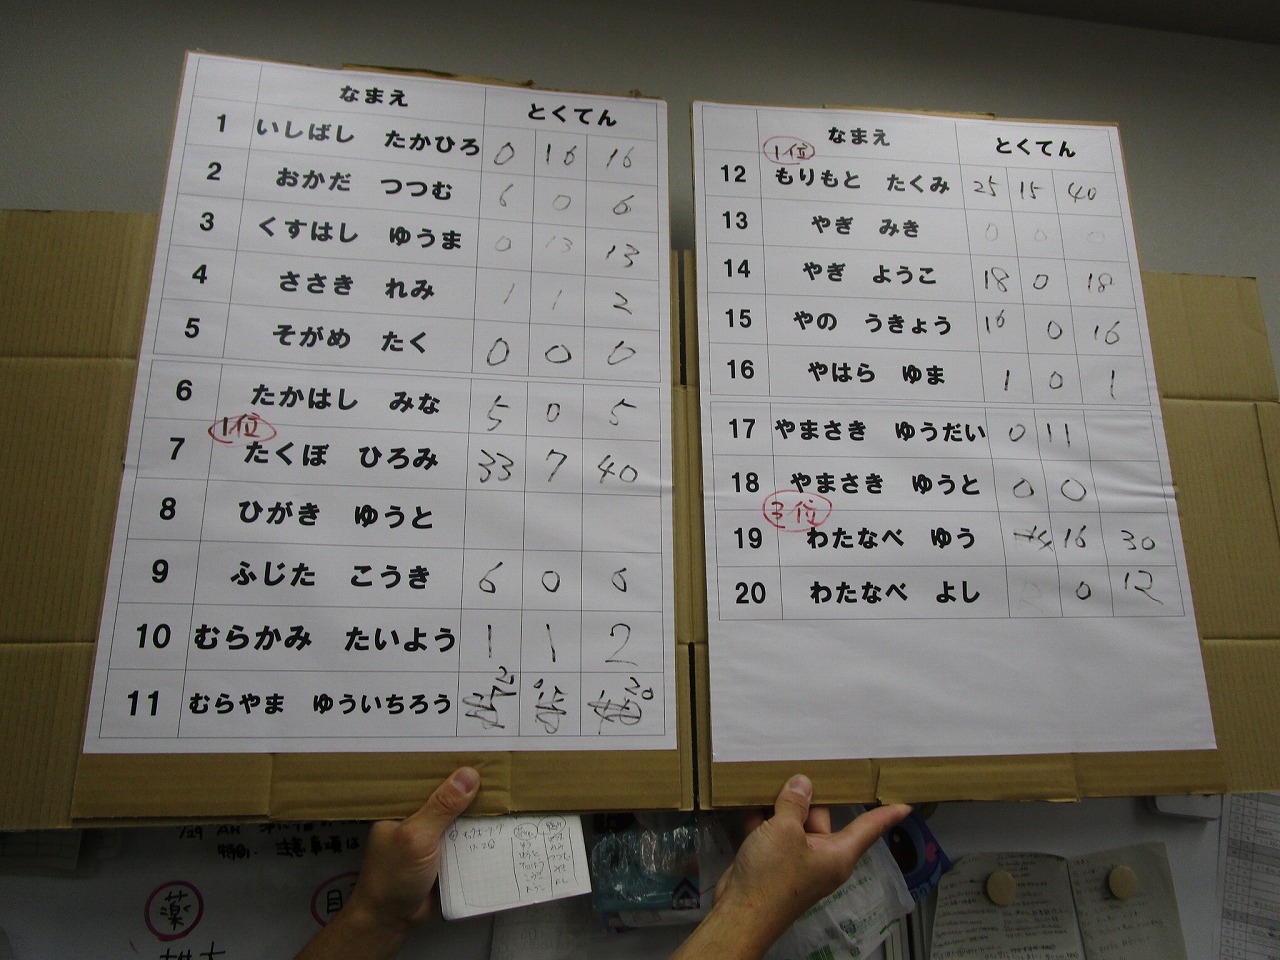 なまえ とくてん
1 いしばし たかひろ 0 16 16
2 おかだ つつむ 6 0 6
3 くすはし ゆうま 0 13 13
4 ささき れみ 1 1 2
5 そがめ たく 0 0 0
6 たかはし みな 5 0 5
1位
7 たくぼ ひろみ 33 7 40
8 ひがき ゆうと
9 ふじた こうき 6 0 6
10 むらかみ たいよう 1 1 2
11 むらやま ゆういちろう
なまえ とくてん
1位
12 もりもと たくみ 25 15 40
13 やぎ みき 0 0 0
14 やぎ ようこ 18 0 18
15 やの うきょう 16 0 16
16 やはら ゆま 1 0 1
17 やまさき ゆうだい 0 11
18 やまさき ゆうと 0 0
3位
19 わたなべ ゆう 16 30
20 わたなべ よし 0 12
特別 注意事項は
薬